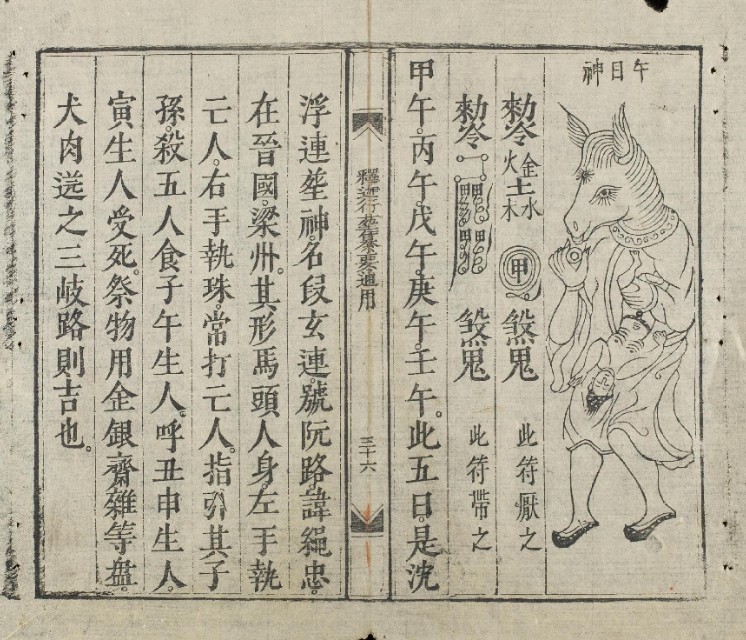 午日神
勑令 火金土木水 甲 煞鬼 此符厭之
勑令 煞鬼 此符帶之
甲午。丙午。戊午。庚午。壬午。此五日。是沈
釋迦行 纂要通用
三十六
浮連 神。名段玄連。號阮路。諱繩忠。
在晉國。梁州。其形馬頭人身左手執
亡人。右手執珠。常打亡人。指引其子
孫。殺五人食子午生人。呼丑申生人。
寅生人受死。祭物用金銀齋雜等盘。
犬肉送之三岐路則吉也。